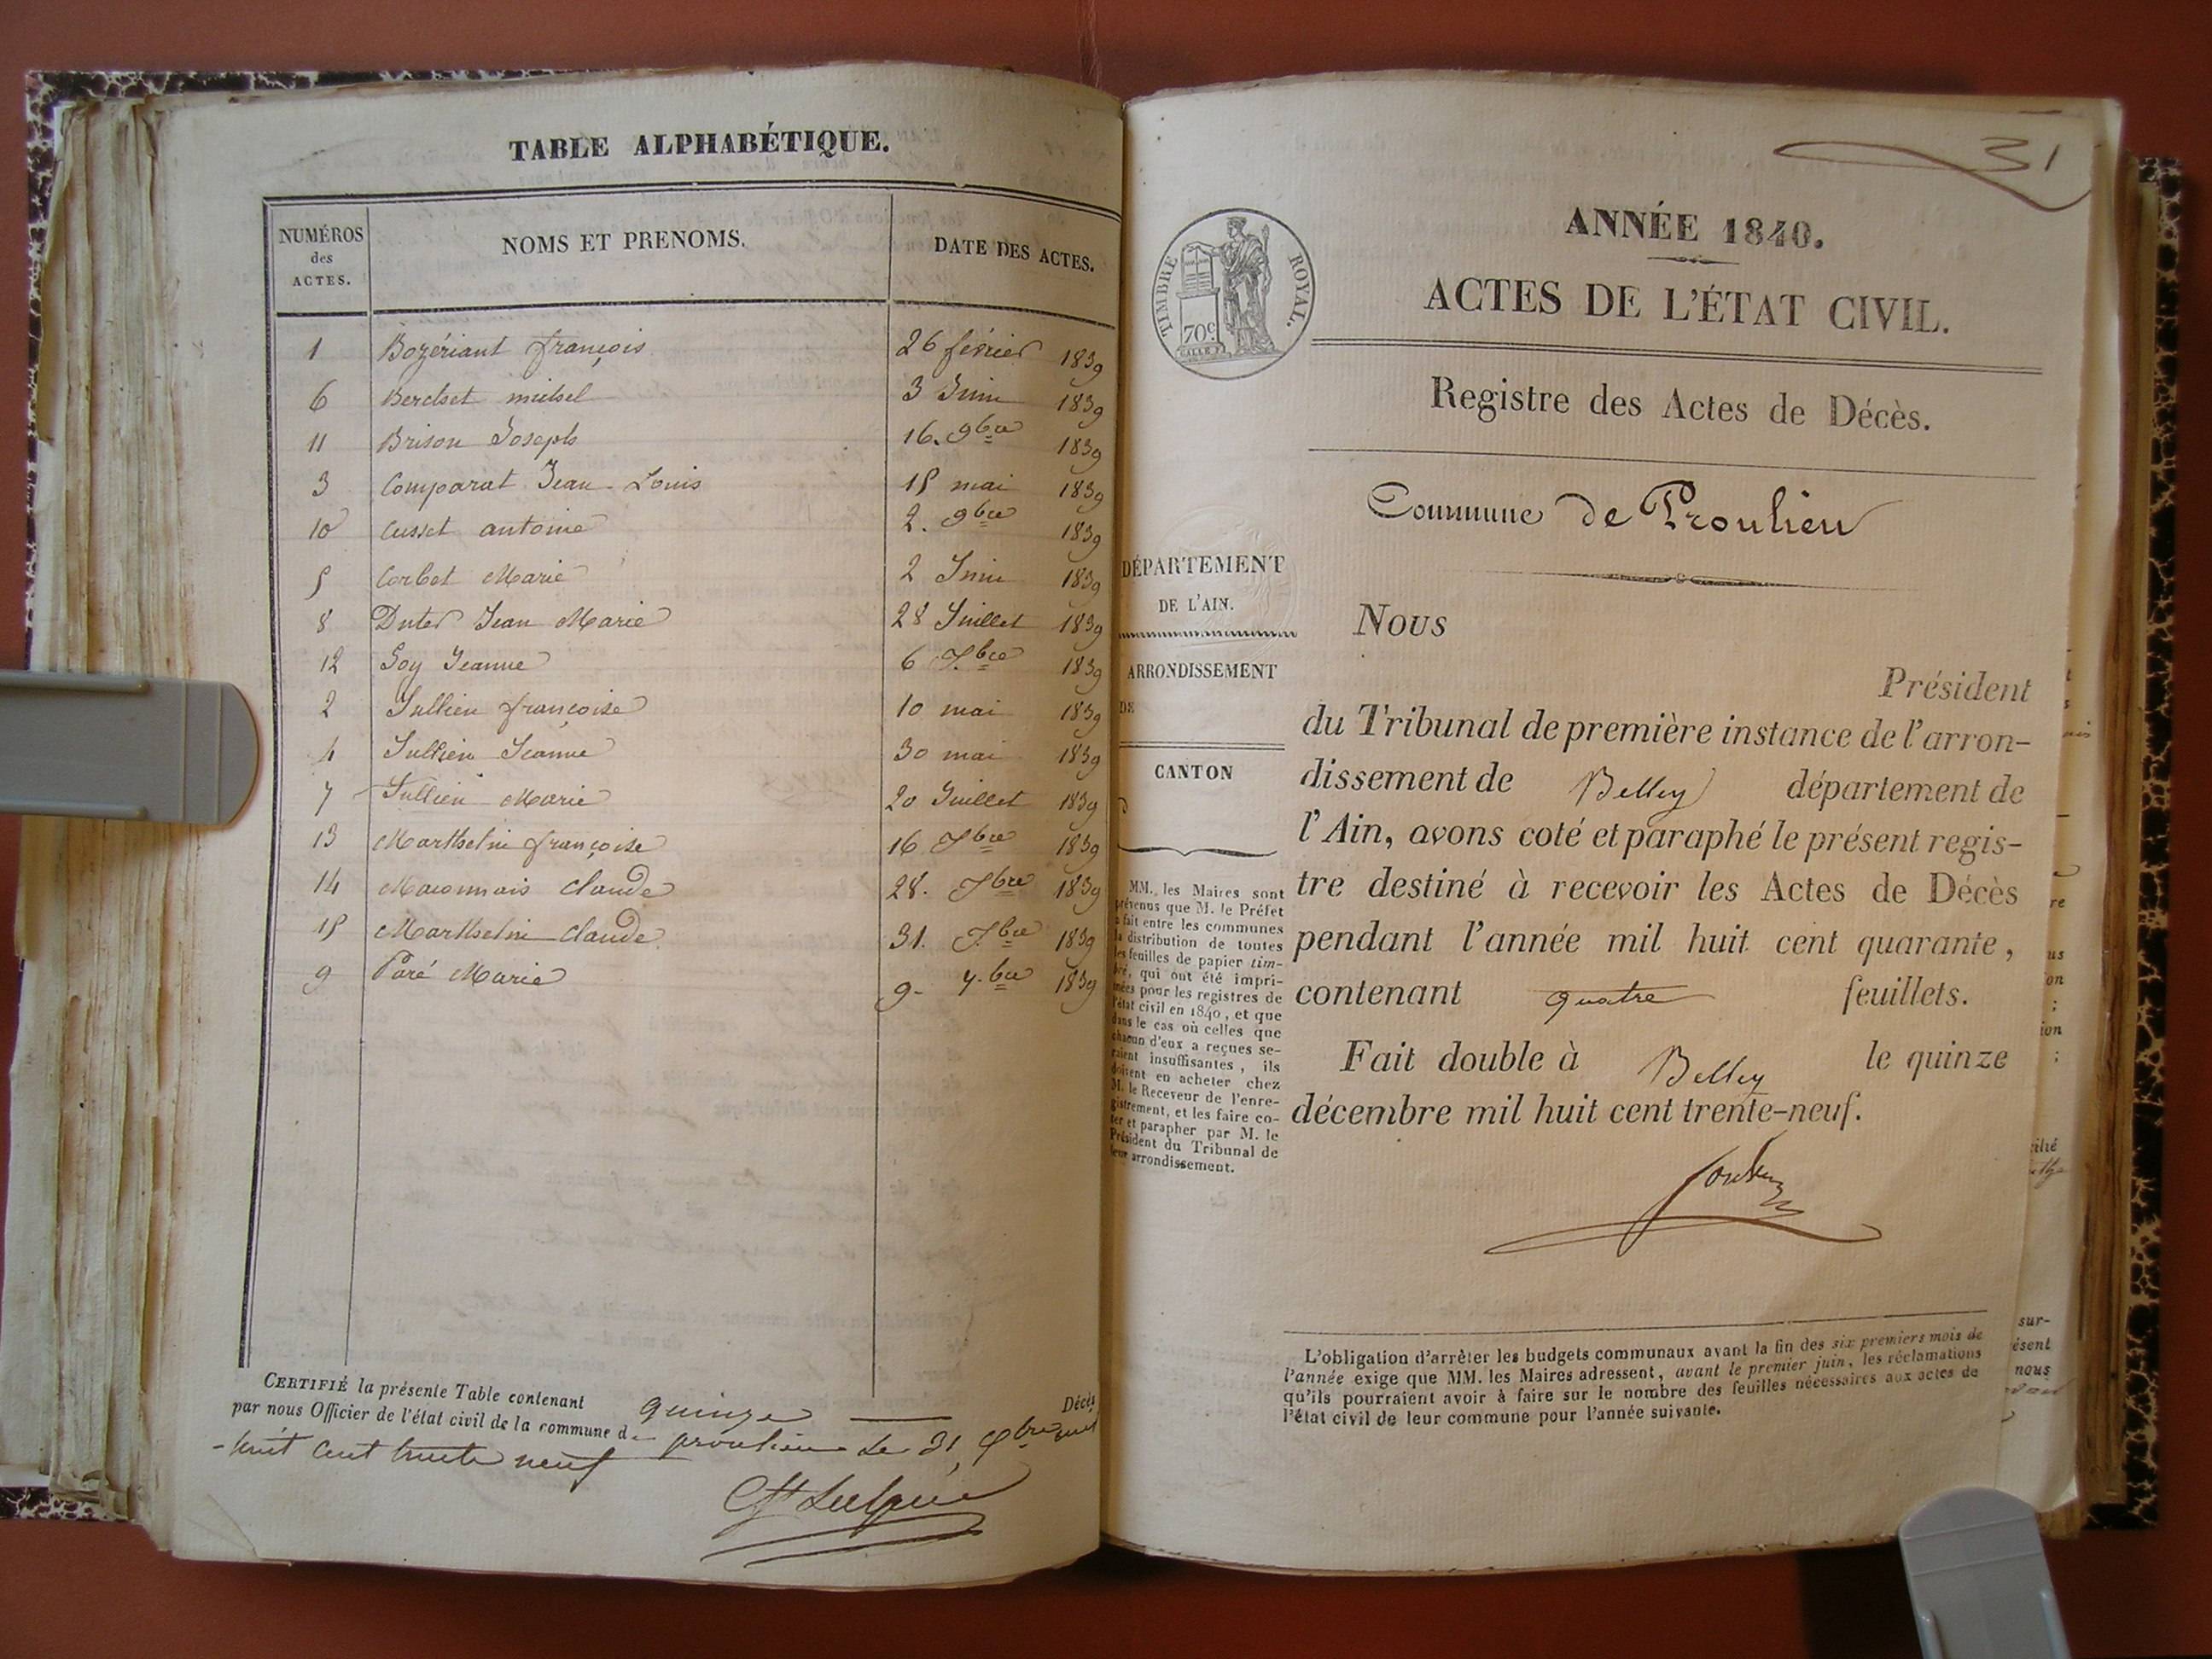 TABLE ALPHABÉTIQUE.
NUMÉROS des ACTES.
NOMS ET PRENOMS.
DATE DES ACTES.
1 Bozériant françois 26 février 1839
6 Berchet michel 3 Juin 1839
11 Brison Joseph 16. 9bre 1839
3 Comparat Jean-Louis 15 mai 1839
10 Cusset antoine 2. 9bre 1839
5 Corbet Marie 2 Juin 1839
8 Duter Jean Marie 28 Juillet 1839
12 Goy Jeanne 6 Xbre 1839
2 Jullien françoise 10 mai 1839
4 Jullien Jeanne 30 mai 1839
7 Jullien Marie 20 Juillet 1839
13 Marthelin françoise 16 Xbre 1839
14 Maconnais claude 28. Xbre 1839
15 Marthelin claude 31. Xbre 1839
9 Paré Marie 9. 7.bre 1839
CERTIFIÉ la présente Table contenant quinze Décès
par nous Officier de l'état civil de la commune de proulieu le 31 Xbre mil
huit cent trente neuf
31
ANNÉE 1840.
ACTES DE L'ÉTAT CIVIL.
TIMBRE ROYAL.
70c
Registre des Actes de Décès.
Commune de Proulieu
DÉPARTEMENT
DE L'AIN.
ARRONDISSEMENT
DE
CANTON
D
MM. les Maires sont
prévenus que M. le Préfet
a fait entre les communes
la distribution de toutes
les feuilles de papier tim-
bré, qui ont été impri-
mées pour les registres de
l'état civil en 1840, et que
dans le cas où celles que
chacun d'eux a reçues se-
raient insuffisantes, ils
doivent en acheter chez
M. le Receveur de l'enre-
gistrement, et les faire co-
ter et parapher par M. le
Président du Tribunal de
leur arrondissement.
Nous
Président
du Tribunal de première instance de l'arron-
dissement de Belley département de
l'Ain, avons coté et paraphé le présent regis-
tre destiné à recevoir les Actes de Décès
pendant l'année mil huit cent quarante,
contenant quatre feuillets.
Fait double à Belley le quinze
décembre mil huit cent trente-neuf.
L'obligation d'arrêter les budgets communaux avant la fin des six premiers mois de
l'année exige que MM. les Maires adressent, avant le premier juin, les réclamations
qu'ils pourraient avoir à faire sur le nombre des feuilles nécessaires aux actes de
l'état civil de leur commune pour l'année suivante.